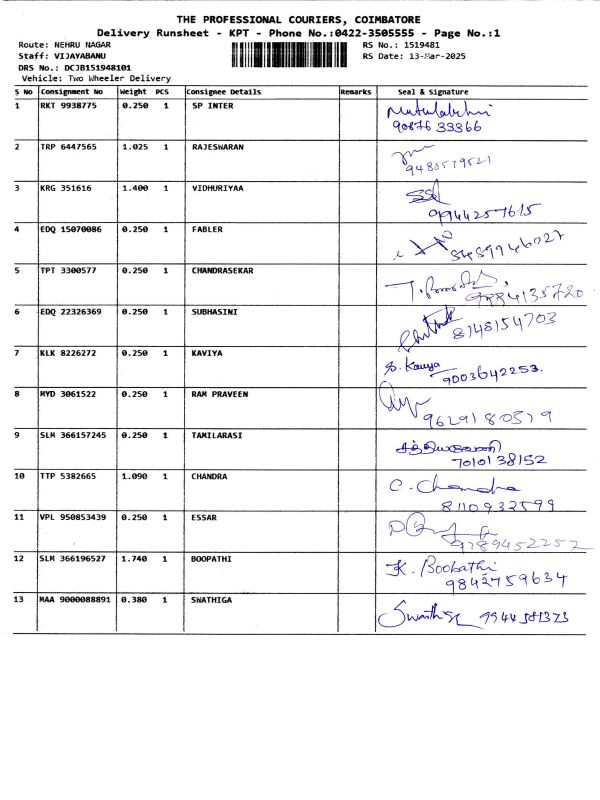 THE PROFESSIONAL COURIERS, COIMBATORE
Delivery Runsheet - KPT - Phone No.:0422-3505555 - Page No.:1
Route: NEHRU NAGAR RS No.: 1519481
Staff: VIJAYABANU RS Date: 13-Mar-2025
DRS No.: DCJB151948101
Vehicle: Two Wheeler Delivery
S No Consignment No Weight PCS Consignee Details Remarks Seal & Signature
1 RKT 9938775 0.250 1 SP INTER
90876 33866
2 TRP 6447565 1.025 1 RAJESWARAN
9488579521
3 KRG 351616 1.400 1 VIDHURIYAA
9944257615
4 EDQ 15070086 0.250 1 FABLER
8489946027
5 TPT 3300577 0.250 1 CHANDRASEKAR
9884135720
6 EDQ 22326369 0.250 1 SUBHASINI
8748154703
7 KLK 8226272 0.250 1 KAVIYA
S. Kaviya
9003642253.
8 MYD 3061522 0.250 1 RAM PRAVEEN
9629180579
9 SLM 366157245 0.250 1 TAMILARASI
7010138152
10 TTP 5382665 1.090 1 CHANDRA
C. Chandra
8110932599
11 VPL 950853439 0.250 1 ESSAR
9789452257
12 SLM 366196527 1.740 1 BOOPATHI
K. Boopathi
9842759634
13 MAA 9000088891 0.380 1 SWATHIGA
9944581373